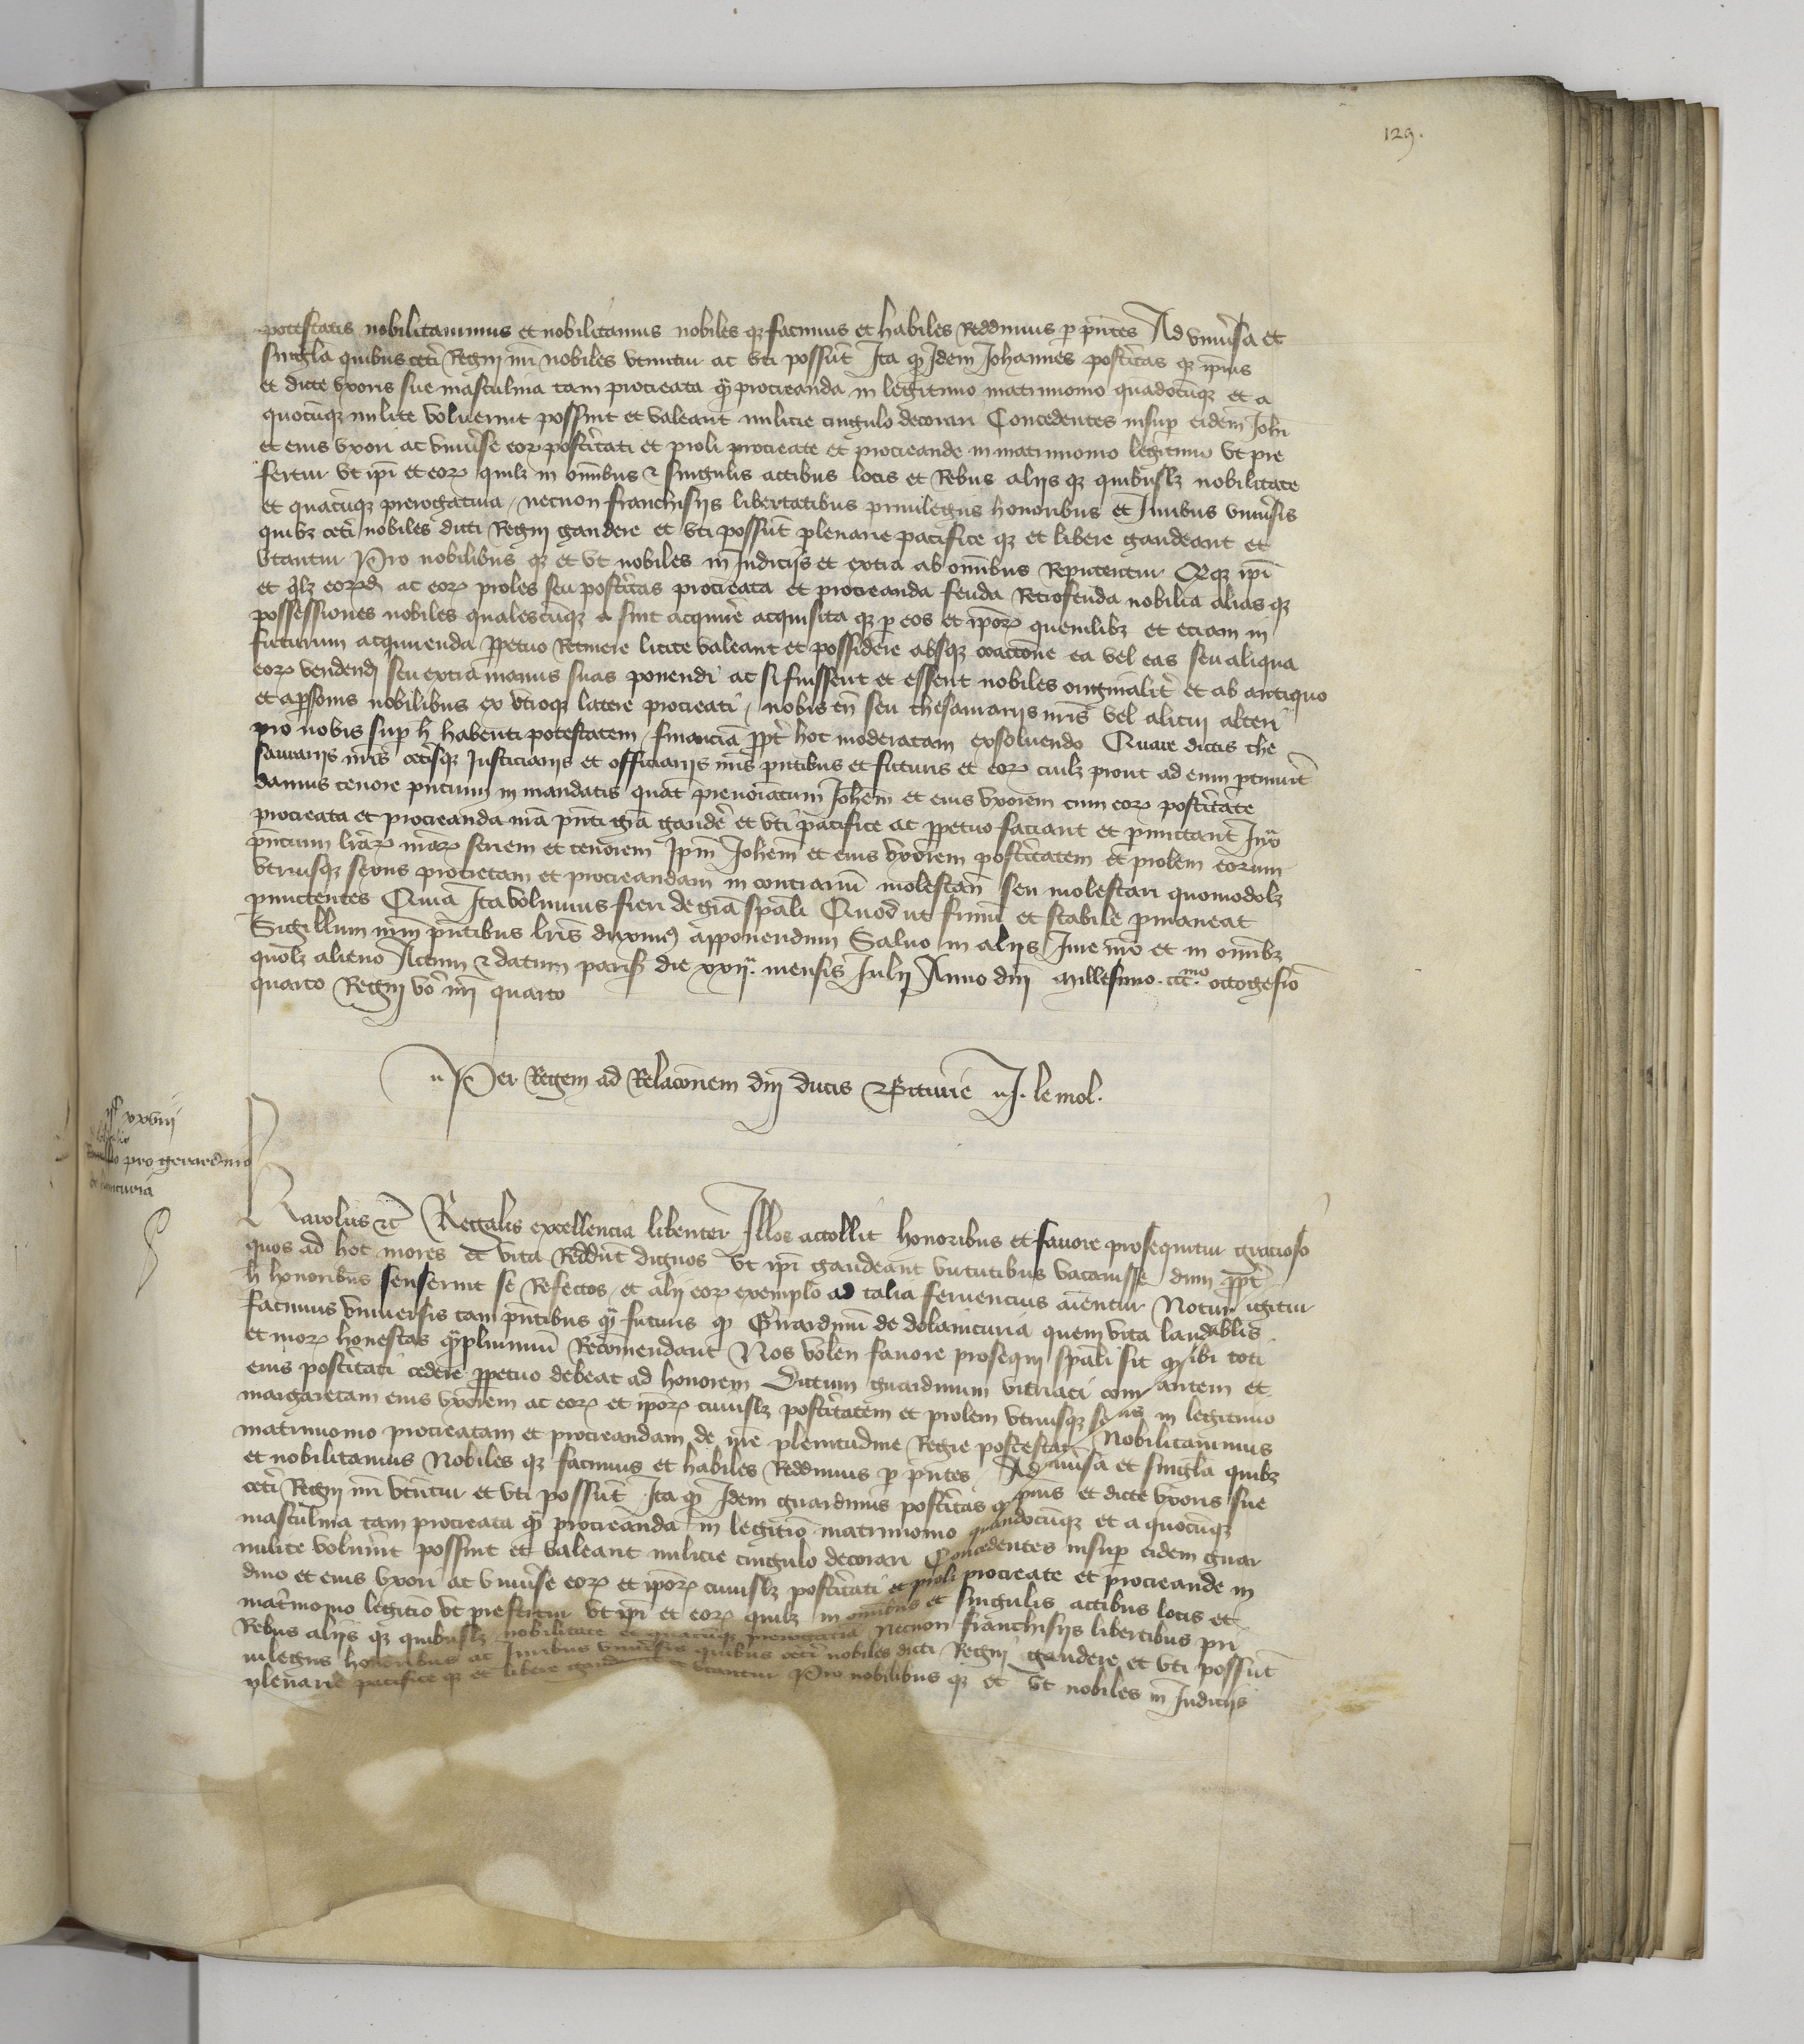 129.
potestatis nobilitavimus et nobilitamus nobiles qz facimus et habiles Reddimus p pntes Ad univsa et
singla quibus ceti Regni nri nobiles utuntur ac uti possut Ita q Idem Johannes postitas qz ipius
et dicte uxoris sue masculina tam procreata q procreanda in legitimo matrimonio quadocuqz et a
quocuqz milite voluerint possint et valeant milicie cingulo decorari Concedentes insup eidem Johi
et eius uxori ac univse eor postitati et proli procreate et procreande in matrimonio legitimo ut pre
fertur ut ipi et eor quilz in omibus et singulis actibus locis et Rebus aliis qz quibuslz nobilitate
et quacuqz prerogativa necnon franchisiis libertatibus privilegiis honoribus et Iuribus univsis
quibz ceti nobiles dicti Regni gaudere et uti possut plenarie pacifice qz et libere gaudeant et
utantur Pro nobilibus qz et ut nobiles in Iudiciis et extra ab omibus Reputentur Qz ipi
et qlz eord ac eor proles seu postitas procreata et procreanda feuda Retrofeuda nobilia alias qz
possessiones nobiles qualescuqz sint acquire acquisita qz p eos et ipor quemlibz et etiam in
futurum acquirenda ppetuo Retinere licite valeant et possidere absqz coactione ea vel eas seu aliqua
eor vendendi seu extra manus suas ponendi ac si fuissent et essent nobiles originalit et ab antiquo
et apsonis nobilibus ex utroqz latere procreati nobis tn seu thesaurariis nris vel alicui alteri
pro nobis sup h habenti potestatem financia ppt hoc moderatam exsolvendo Quare dictis the
saurariis nris cetisqz Justiciariis et officiariis nris pntibus et futuris et eor cuilz prout ad eum ptinuit
damus tenore pntium in mandatis quat prenoiatum Johem et eius uxorem cum eor postitate
procreata et procreanda nra pnti gra gaude et uti pacifice ac ppetuo faciant et pmittant
pntium lrar nrar seriem et tenorem Ipm Johem et eius uxorem postitatem et prolem eorum
utriusqz sexus procreatam et procreandam in contrariu molestari seu molestari quomodolz
pmittentes Quia Ita volumus fieri de gra spali Quod ut firmu et stabile pmaneat
Sigillum nrm pntibus lris duxim apponendum Salvo in aliis Iure nro et in omibz
quolz alieno Actum et datum paris die xxii mensis Julii Anno dni millesimo ccc mo octogesio
quarto Regni vo nri quarto
Per Regem ad Relacionem dni ducis Biturie J. le mol.
xxviii
pro gerardino
Karolus etc Regalis excellencia libenter Illos attollit honoribus et favore prosequitur gracioso
quos ad hoc mores et vita Reddut dignos ut ipi gaudeant virtutibus vacavisse dum ppt
h honoribus senserint se Refectos et alii eor exemplo ad talia ferventius aientur Notu igitur
facimus Universis tam pntibus q futuris q Girardinu de dolaincuria quem vita laudablis
et mor honestas qplurimu Recomendant Nos volen favore prosequi spali sic q sibi toti
eius postitati cedere ppetuo debeat ad honorem Dictum guardinum Vitriaci comorantem et
margaretam eius uxorem ac eor et ipor cuiuslz postitatem et prolem utriusqz sexus in legitimo
matrimonio procreatam et procreandam de nre plenitudine Regie potestat Nobilitavimus
et nobilitamus Nobiles qz facimus et habiles Reddimus p pntes Ad univsa et singla quibz
ceti Regni nri utuntur et uti possut Ita q Idem guardinus postitas qz ipius et dicte uxoris sue
masculina tam procreata q procreanda in legitio matrimonio quandocuqz et a quocuqz
milite voluint possint et valeant milicie cingulo decorari Concedentes insup eidem guar
dino et eius uxori ac univse eor et ipor cuiuslz postitati et proli procreate et procreande in
matrimonio legitio ut prefertur ut ipi et eor quilz in omibus et singulis actibus locis et
Rebus aliis qz quibuslz nobilitate et quacuqz prerogativa necnon franchisiis libertibus pri
vilegiis honoribus ac Iuribus univsis quibus ceti nobiles dicti Regni gaudere et uti possut
plenarie pacifice qz et libere gaudeant et utantur Pro nobilibus qz et ut nobiles in Iudiciis